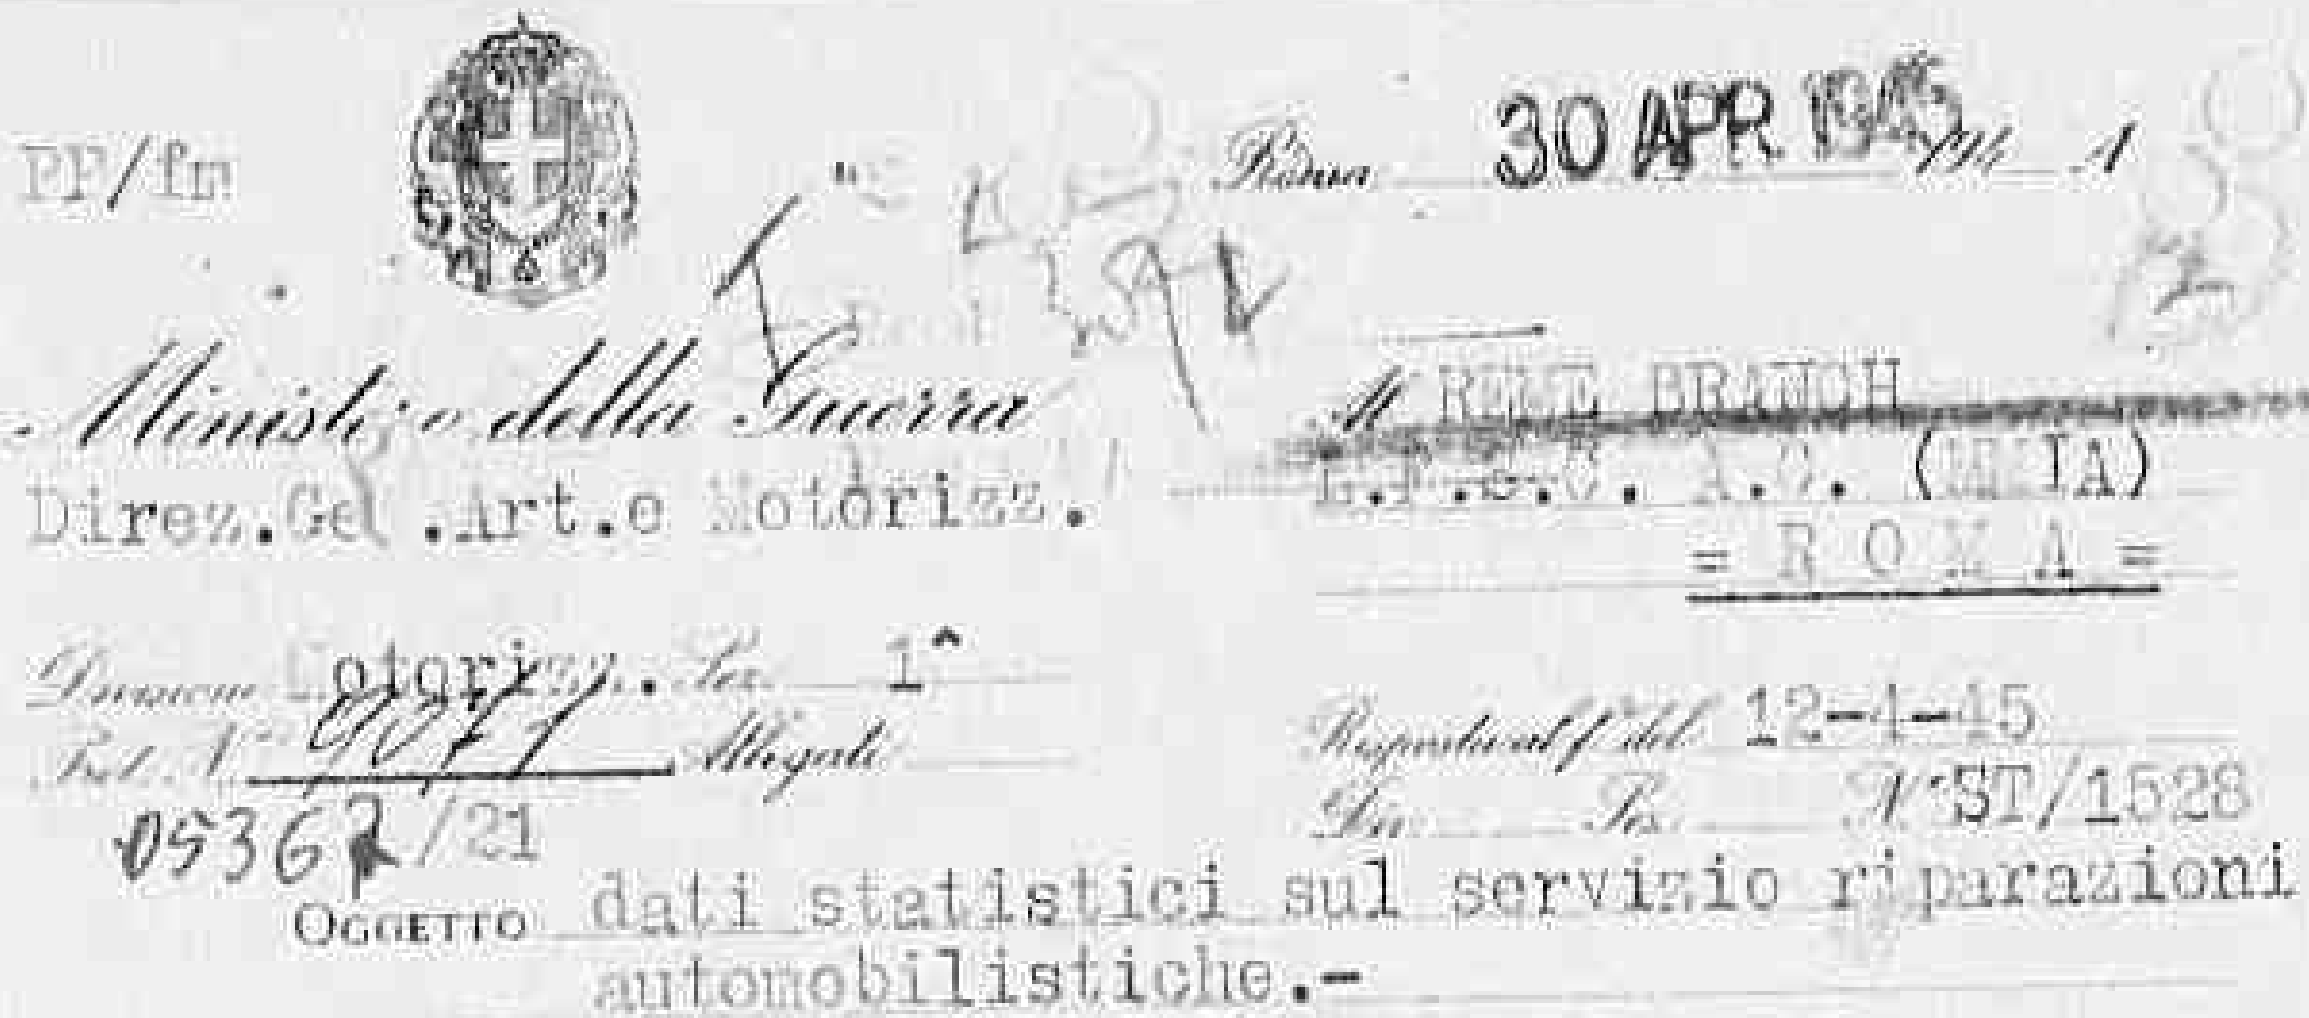 PF/fm
Roma 30 APR 1945 194
Ministero della Guerra
Direz.Gen.Art.e Motorizz.
Al BRANCH
(MMIA)
= R O M A =
Divisione Motorizz. Sez. 1^
Prot. N. Allegati
0536 /21
Risposta al f. del 12-4-45
Div. Sez. N. ST/1528
OGGETTO dati statistici sul servizio riparazioni
automobilistiche.-